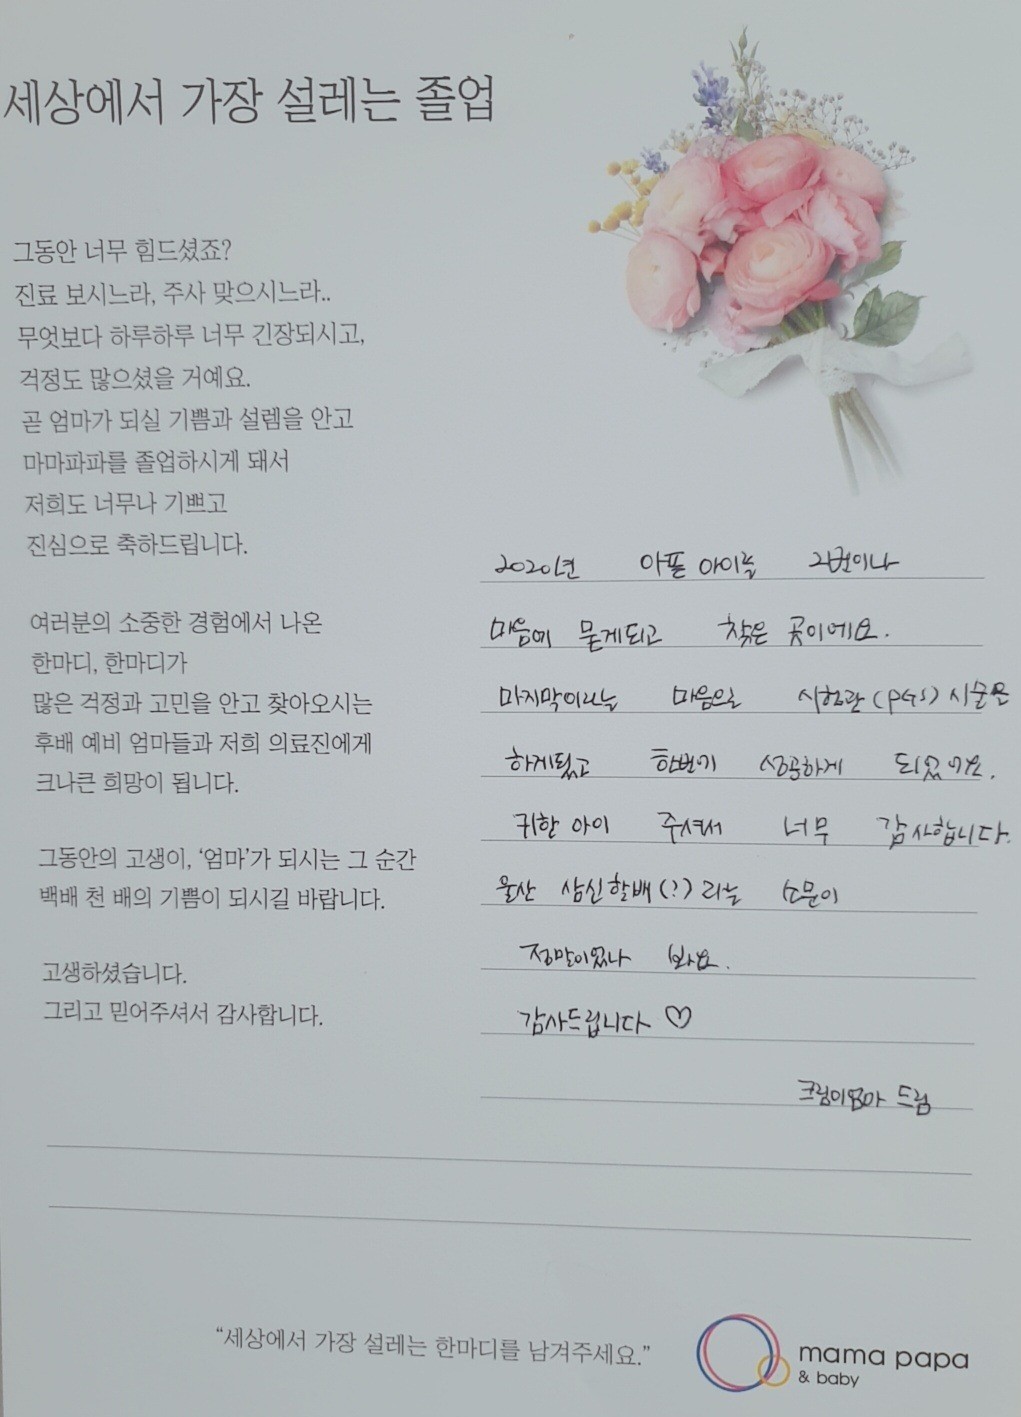 세상에서 가장 설레는 졸업
그동안 너무 힘드셨죠?
진료 보시느라, 주사 맞으시느라..
무엇보다 하루하루 너무 긴장되시고,
걱정도 많으셨을 거예요.
곧 엄마가 되실 기쁨과 설렘을 안고
마마파파를 졸업하시게 돼서
저희도 너무나 기쁘고
진심으로 축하드립니다.
여러분의 소중한 경험에서 나온
한마디, 한마디가
많은 걱정과 고민을 안고 찾아오시는
후배 예비 엄마들과 저희 의료진에게
크나큰 희망이 됩니다.
그동안의 고생이, '엄마'가 되시는 그 순간
백배 천 배의 기쁨이 되시길 바랍니다.
고생하셨습니다.
그리고 믿어주셔서 감사합니다.
2020년 아픈 아이를 2번이나
마음에 묻게되고 찾은 곳이에요.
마지막이라는 마음으로 시험관(PGS) 시술을
하게됬고 한번에 성공하게 되었어요.
귀한 아이 주셔서 너무 감사합니다.
울산 삼신할배(?)라는 소문이
정말이었나 봐요.
감사드립니다 ♡
크림이엄마 드림
"세상에서 가장 설레는 한마디를 남겨주세요."
mama papa
& baby